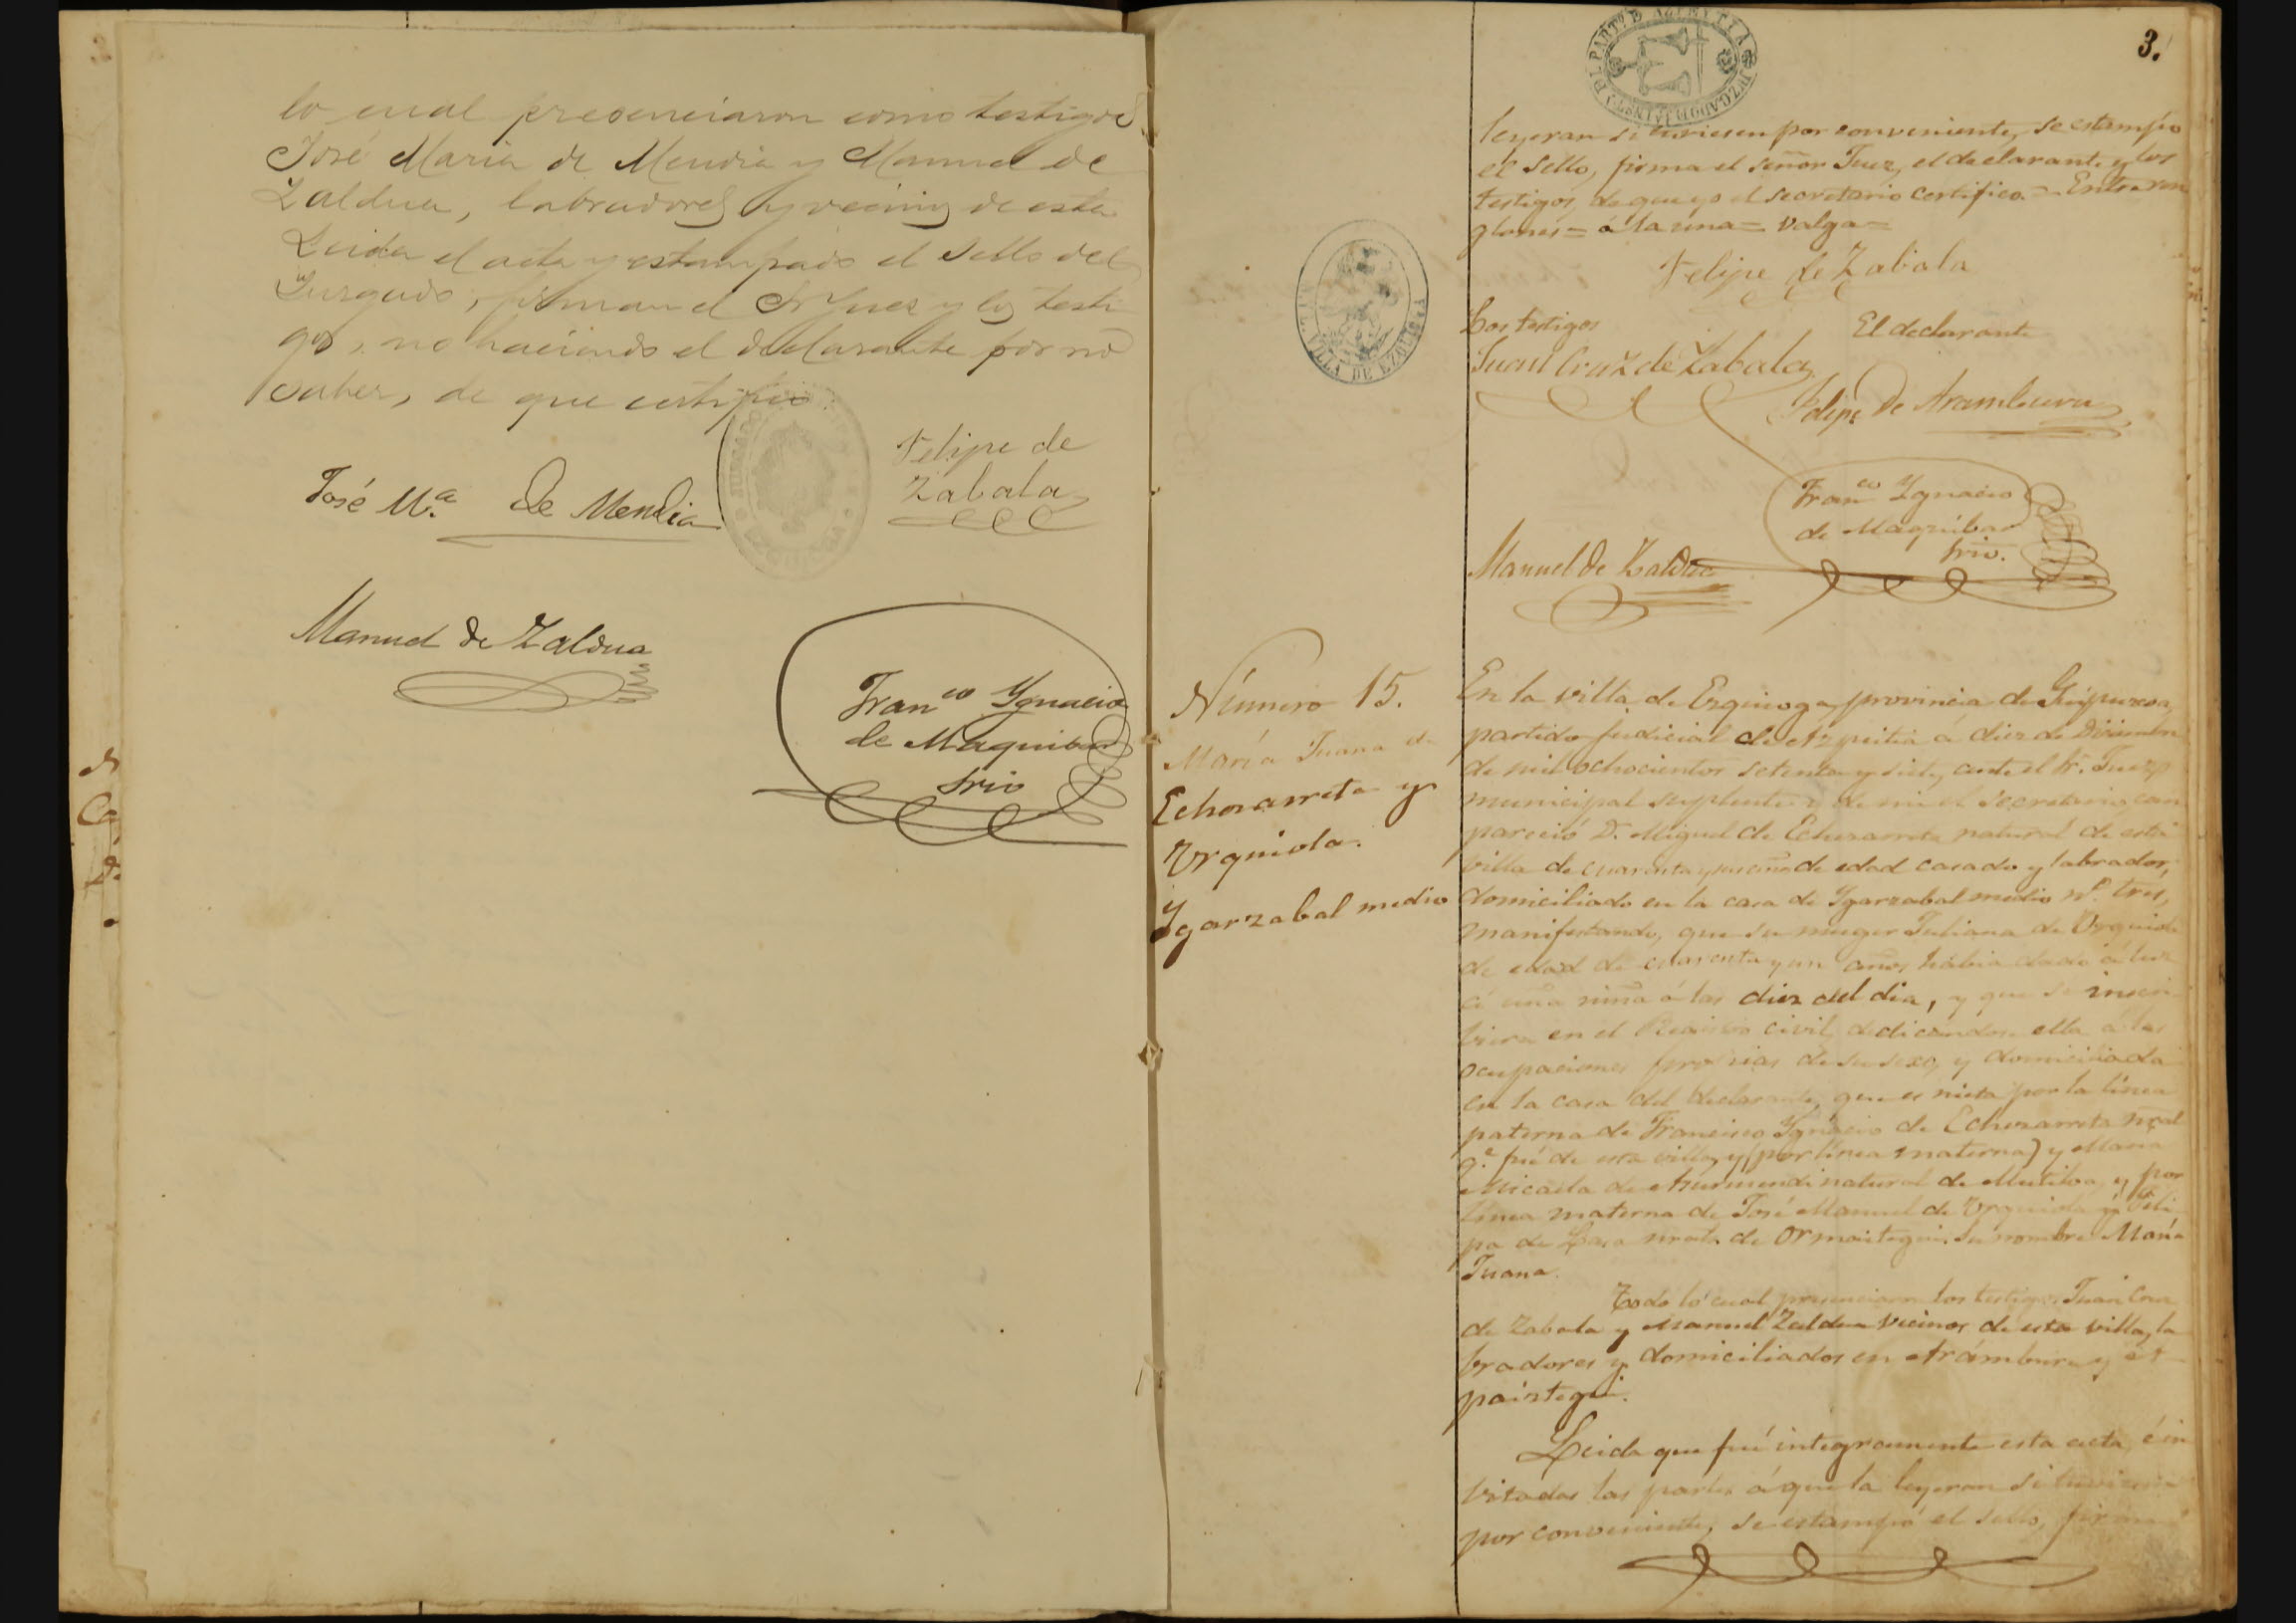 lo cual presenciaron como testigos
José Maria de Mendia y Manuel de
Zaldua, labradores y vecinos de esta.
Leida el acta y estampado el sello del
Juzgado, firman el Sr Juez y los testi
gos, no haciendo el declarante por no
saber, de que certifico.
Felipe de
Zabala
José Mª. de Mendia
Manuel de Zaldua
Franco Ygnacio
de Maquibar
Srio
3.
leyeran si tuviesen por conveniente, se estampó
el sello, firma el señor Juez, el declarante y los
testigos, de que yo el secretario certifico. = Entreren
glones = á la una = valga =
Felipe de Zabala
Los testigos
El declarante
Juan Cruz de Zabala
Felipe de Aramburu
Franco Ygnacio
de Maquibar
Srio.
Manuel de Zaldua
VILLA DE EZQUIOGA
Número 15.
María Juana de
Echezarreta y
Urquiola.
Ygarzabal medio
En la villa de Ezquioga, provincia de Guipuzcoa,
partido judicial de Azpeitia á diez de Diciembre
de mil ochocientos setenta y siete, ante el Sr. Juez
municipal suplente y de mi el secretario com
pareció D. Miguel de Echezarreta natural de esta
villa de cuarenta y de edad casado y labrador,
domiciliado en la casa de Ygarzabal medio nº. tres,
manifestando, que su muger Juliana de Urquiola
de edad de cuarenta y un años habia dado á luz
á una niña á las diez del dia, y que se inscri
biera en el Registro civil, dedicandose ella á las
ocupaciones propias de su sexo, y domiciliada
en la casa del declarante, que es nieta por la línea
paterna de Francisco Ygnacio de Echezarreta nral
q.e fué de esta villa, y (por línea materna) y Maria
Micaela de Azurmendi natural de Mutiloa, y por
línea materna de José Manuel de Urquiola y Feli
pa de Lasa nrals. de Ormaiztegui. Su nombre María
Juana.
Todo lo cual presenciaron los testigos Juan Cruz
de Zabala y Manuel Zaldua vecinos de esta villa, la
bradores y domiciliados en Arámburu y
Leida que fué integramente esta acta, é in
vitadas las partes á que la leyeran si tuviesen
por conveniente, se estampó el sello, firman